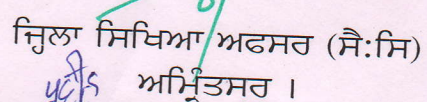 ਜ਼ਿਲਾ ਸਿਖਿਆ ਅਫਸਰ (ਸੈ:ਸਿ)
ਅਮ੍ਰਿੰਤਸਰ ।